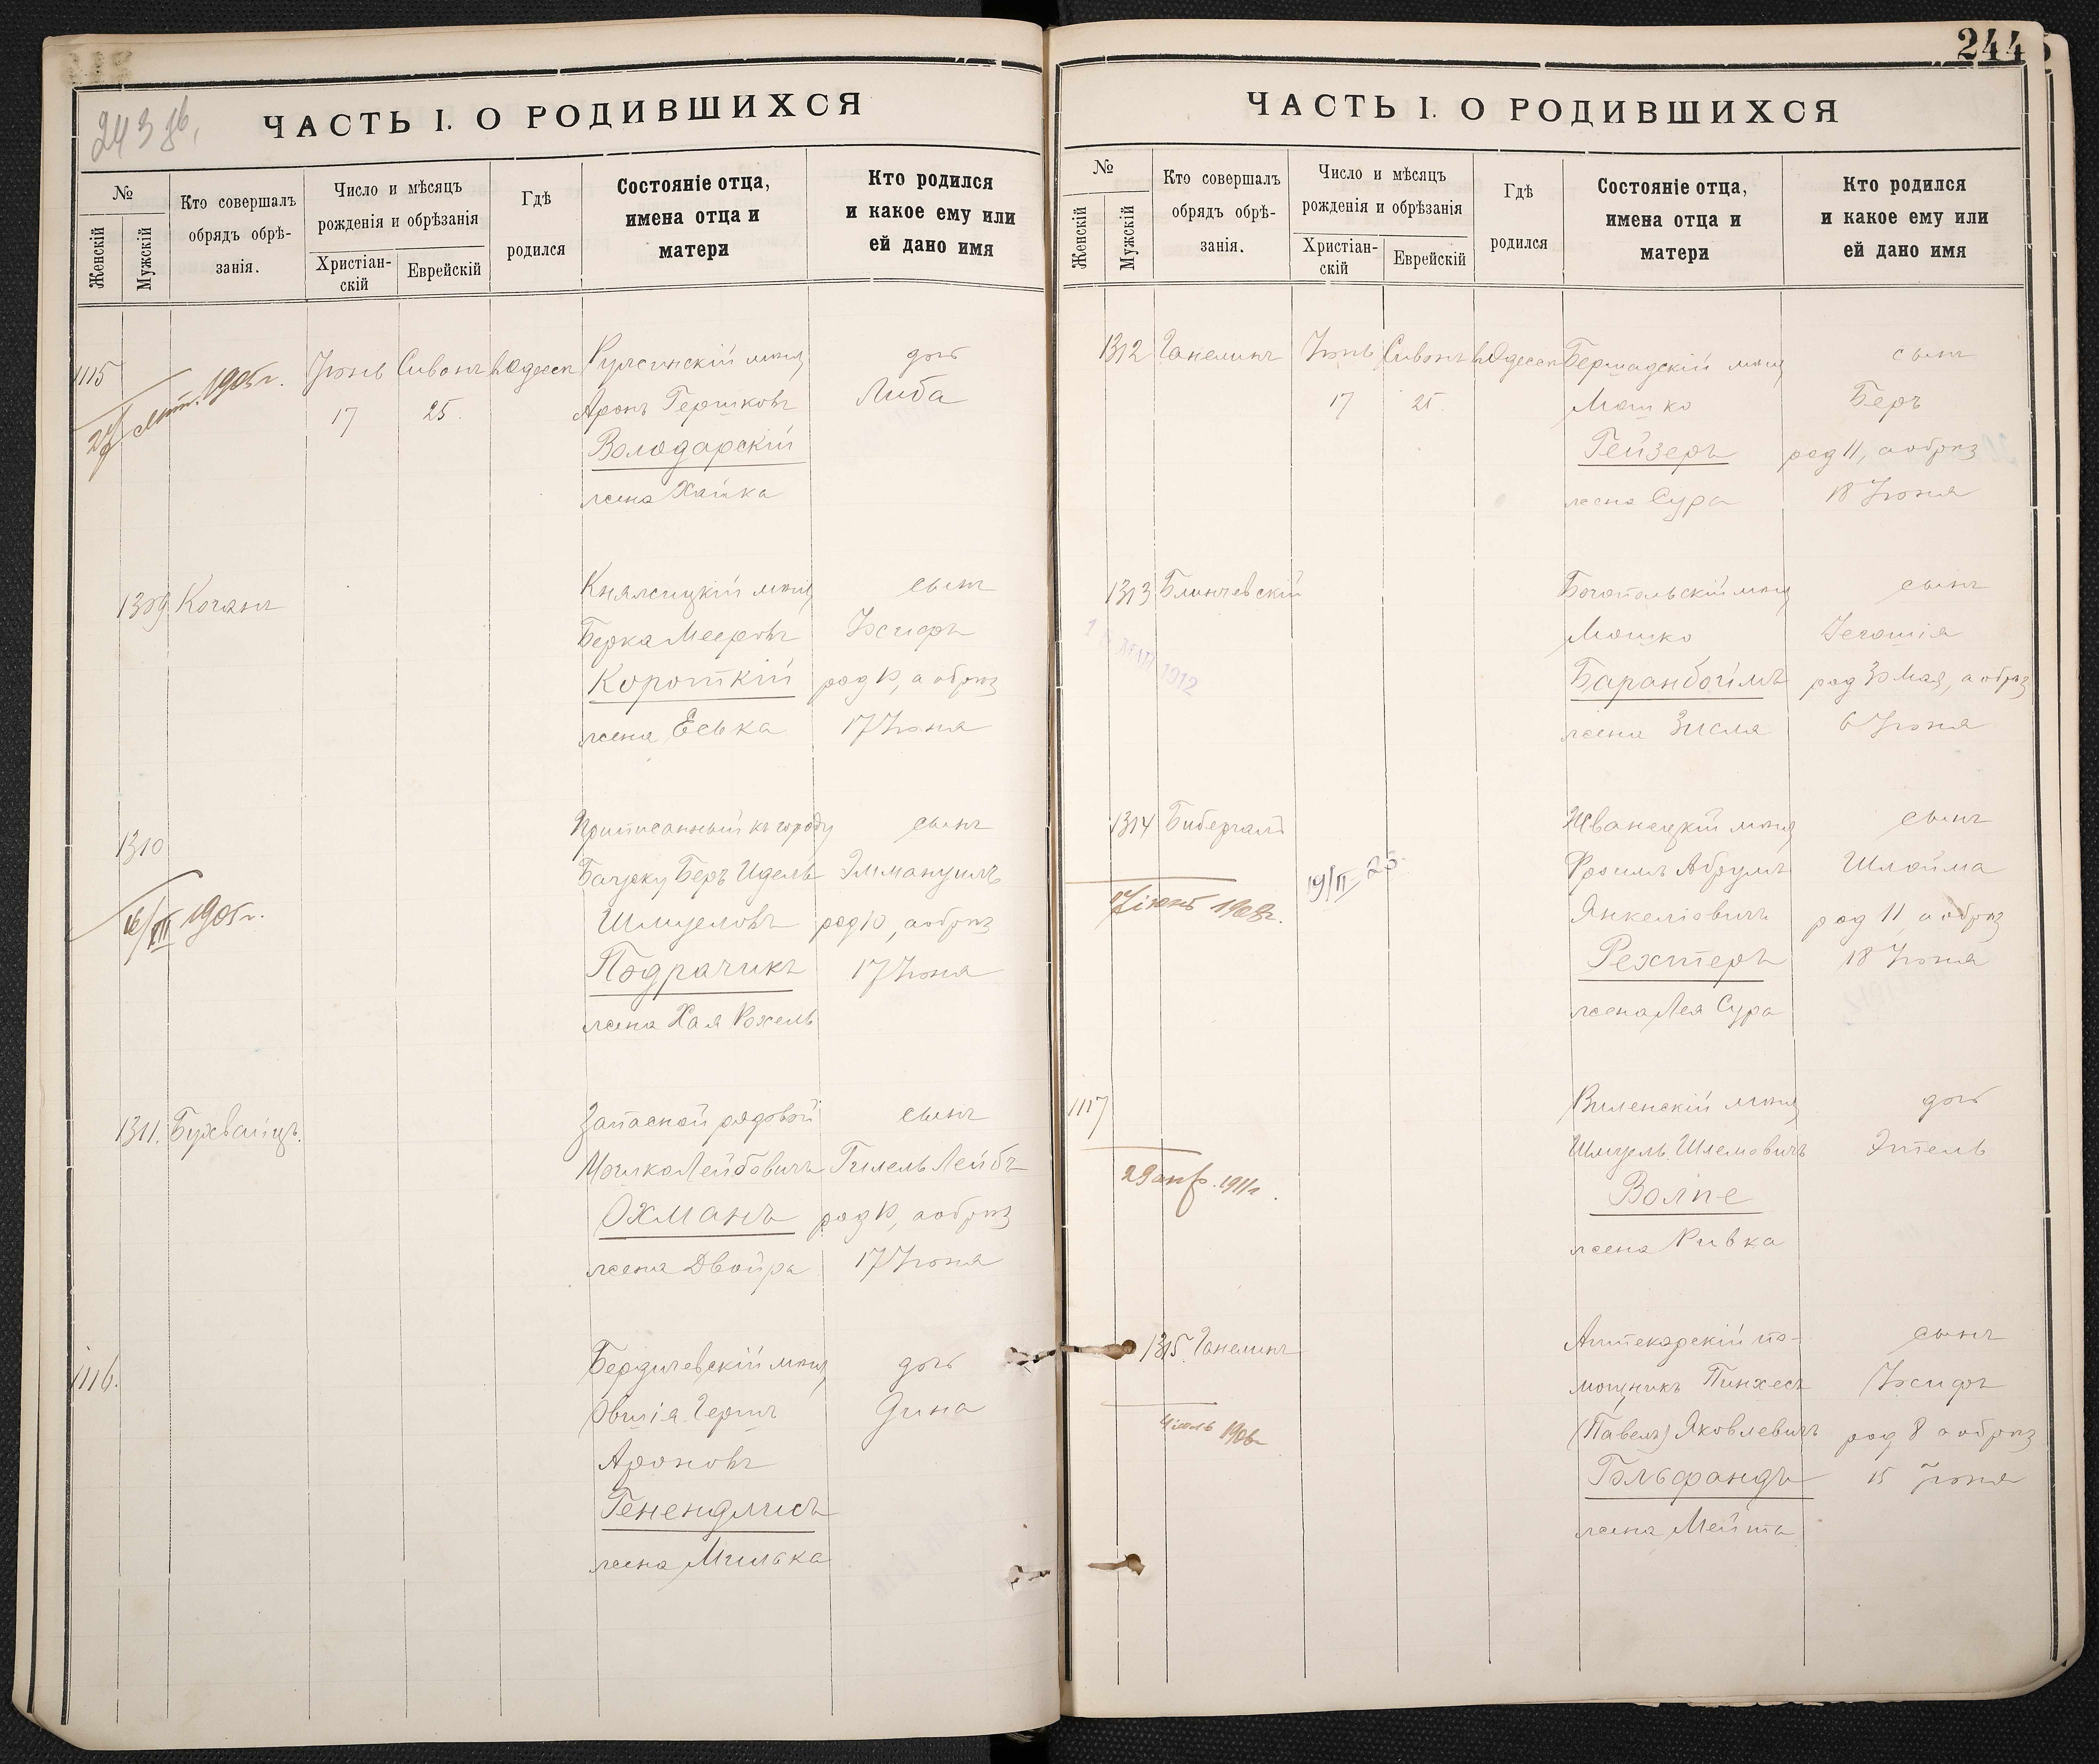 243 об.
ЧАСТЬ I. О РОДИВШИХСЯ
№
Женскій
Мужскій
Кто совершалъ
обрядъ обрѣ-
занія.
Число и мѣсяцъ
рожденія и обрѣзанія
Христіан-
скій
Еврейскій
Гдѣ
родился
Состояніе отца,
имена отца и
матери
Кто родился
и какое ему или
ей дано имя
1115
1905 г.
Іюнь Сивонъ въ Одессѣ
17 25.
мѣщ
Аронъ Гершковъ
Володарскій
жена Хайка
дочь
Либа
1309 Коганъ
Княжицкій мѣщ
Берка Мееровъ
Короткій
жена Еська
сынъ
Іосифъ
род 10, а обрѣз
17 Іюня
1310
16/VIII 1905 г.
Приписанный къ городу
Беръ Идель
Шмуеловъ
Подрачикъ
жена Хая Рохель
сынъ
Эммануилъ
род 10, а обрѣз
17 Іюня
1311.
Запасной рядовой
Лейбовичъ
Охманъ
жена Двойра
сынъ
Гилель Лейбъ
род 10, а обрѣз
17 Іюня
1116.
Бердичевскій мѣщ
Овшія Гершъ
Ароновъ
Генендлисъ
жена Милька
дочь
Дина
244
ЧАСТЬ I. О РОДИВШИХСЯ
№
Женскій
Мужскій
Кто совершалъ
обрядъ обрѣ-
занія.
Число и мѣсяцъ
рожденія и обрѣзанія
Христіан-
скій
Еврейскій
Гдѣ
родился
Состояніе отца,
имена отца и
матери
Кто родился
и какое ему или
ей дано имя
1312 Ганелинъ
Іюнь Сивонъ въ Одессѣ
17 25.
Бершадскій мѣщ
Мошко
Гейзеръ
жена Сура
сынъ
Беръ
род 11, а обрѣз
18 Іюня
1313 Блинчевскій
1912
Богопольскій мѣщ
Мошко
Баранбоймъ
жена Зисля
сынъ
род 30 Мая, а обрѣз
6 Іюня
1314 Бибергалъ
19/II 25
Жванецкій мѣщ
Фроимъ Абрумъ
Янкеліовичъ
Рехтеръ
жена Лея Сура
сынъ
Шлойма
род 11, а обрѣз
18 Іюня
1117
29 апр. 1911 г.
Виленскій мѣщ
Шмуель Шлемовичъ
Волпе
жена Ривка
дочь
Этель
1315. Ганелинъ
Аптекарскій по-
мощникъ Пинхесъ
(Павелъ) Яковлевичъ
Гольфандъ
жена Мейта
сынъ
Іосифъ
род 8 а обрѣз
15 Іюня